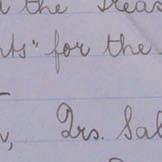 the
nts" for the
Drs. Sal